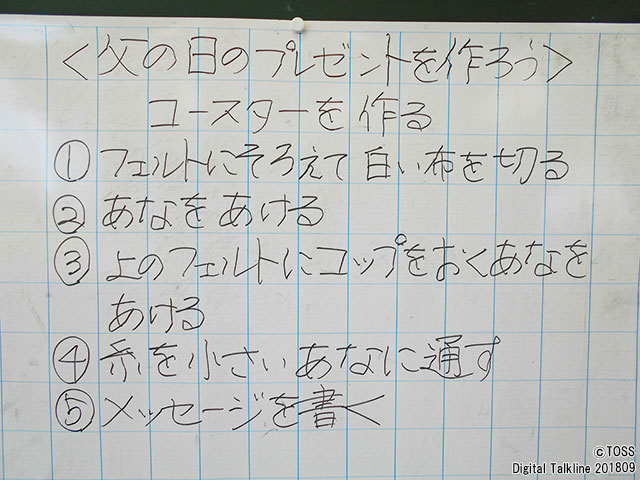 <父の日のプレゼントを作ろう>
コースターを作る
①フェルトにそろえて白い布を切る
②あなをあける
③上のフェルトにコップをおくあなを
あける
④糸を小さいあなに通す
⑤メッセージを書く
©TOSS
Digital Talkline 201809